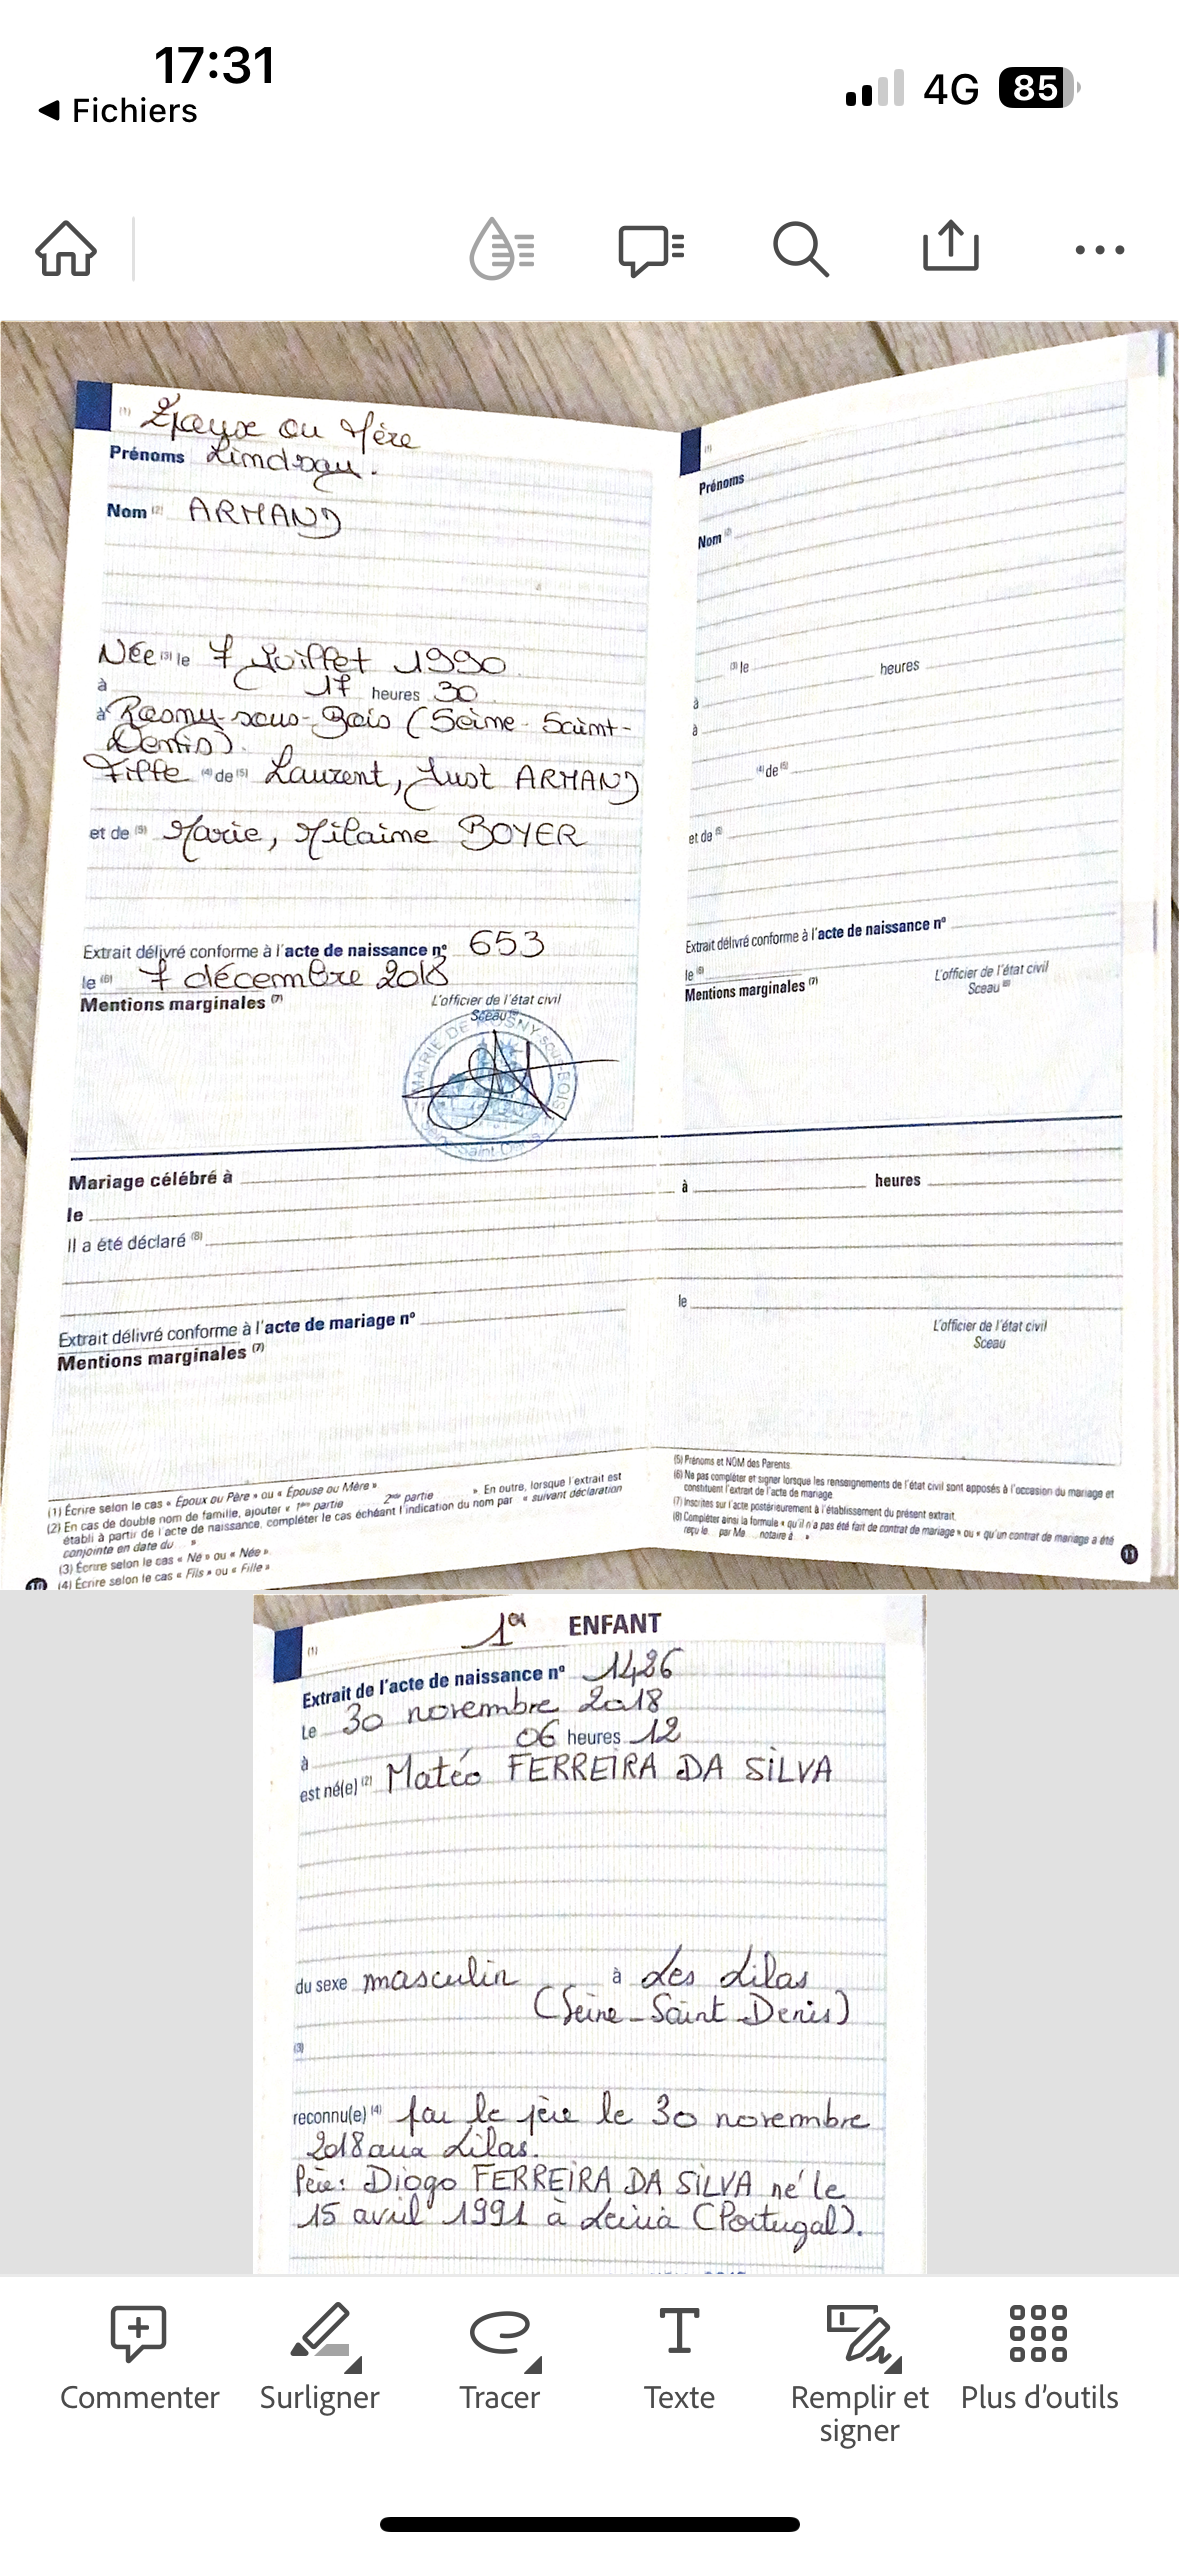 17:31
4G 85
◀ Fichiers
(1) Épouse ou Mère
Prénoms Lindsay.
Nom (2) ARMAND
Née (3) le 7 Juillet 1990
à 17 heures 30
à Rosny-sous-Bois (Seine-Saint-
Denis).
Fille (4) de (5) Laurent, Just ARMAND
et de (5) Marie, Hilaine BOYER
Extrait délivré conforme à l'acte de naissance nº 653
le (6) 7 décembre 2018
Mentions marginales (7) L'officier de l'état civil
Sceau
MAIRIE DE ROSNY-SOUS-BOIS
Seine-Saint-Denis
(1)
Prénoms
Nom (2)
(3) le heures
à
à
(4) de (5)
et de (5)
Extrait délivré conforme à l'acte de naissance nº
le (6) L'officier de l'état civil
Mentions marginales (7) Sceau (6)
Mariage célébré à
le à heures
Il a été déclaré (8)
le
Extrait délivré conforme à l'acte de mariage nº
Mentions marginales (7)
L'officier de l'état civil
Sceau
(1) Écrire selon le cas « Époux ou Père » ou « Épouse ou Mère »
(2) En cas de double nom de famille, ajouter « 1ère partie 2nde partie ». En outre, lorsque l'extrait est
établi à partir de l'acte de naissance, compléter le cas échéant l'indication du nom par « suivant déclaration
conjointe en date du ... »
(3) Écrire selon le cas « Né » ou « Née ».
(4) Écrire selon le cas « Fils » ou « Fille »
10
(5) Prénoms et NOM des Parents.
(6) Ne pas compléter et signer lorsque les renseignements de l'état civil sont apposés à l'occasion du mariage et
constituent l'extrait de l'acte de mariage
(7) Inscrites sur l'acte postérieurement à l'établissement du présent extrait.
(8) Compléter ainsi la formule « qu'il n'a pas été fait de contrat de mariage » ou « qu'un contrat de mariage a été
reçu le... par Me... notaire à... »
11
(1) 1er ENFANT
Extrait de l'acte de naissance nº 1486
Le 30 novembre 2018
à 06 heures 12
est né(e) (2) Matéo FERREIRA DA SILVA
du sexe masculin à Les Lilas
(Seine-Saint Denis)
(3)
reconnu(e) (4) par le père le 30 novembre
2018 aux Lilas.
Père: Diogo FERREIRA DA SILVA né le
15 avril 1991 à Leiria (Portugal).
Commenter
Surligner
Tracer
Texte
Remplir et
signer
Plus d'outils